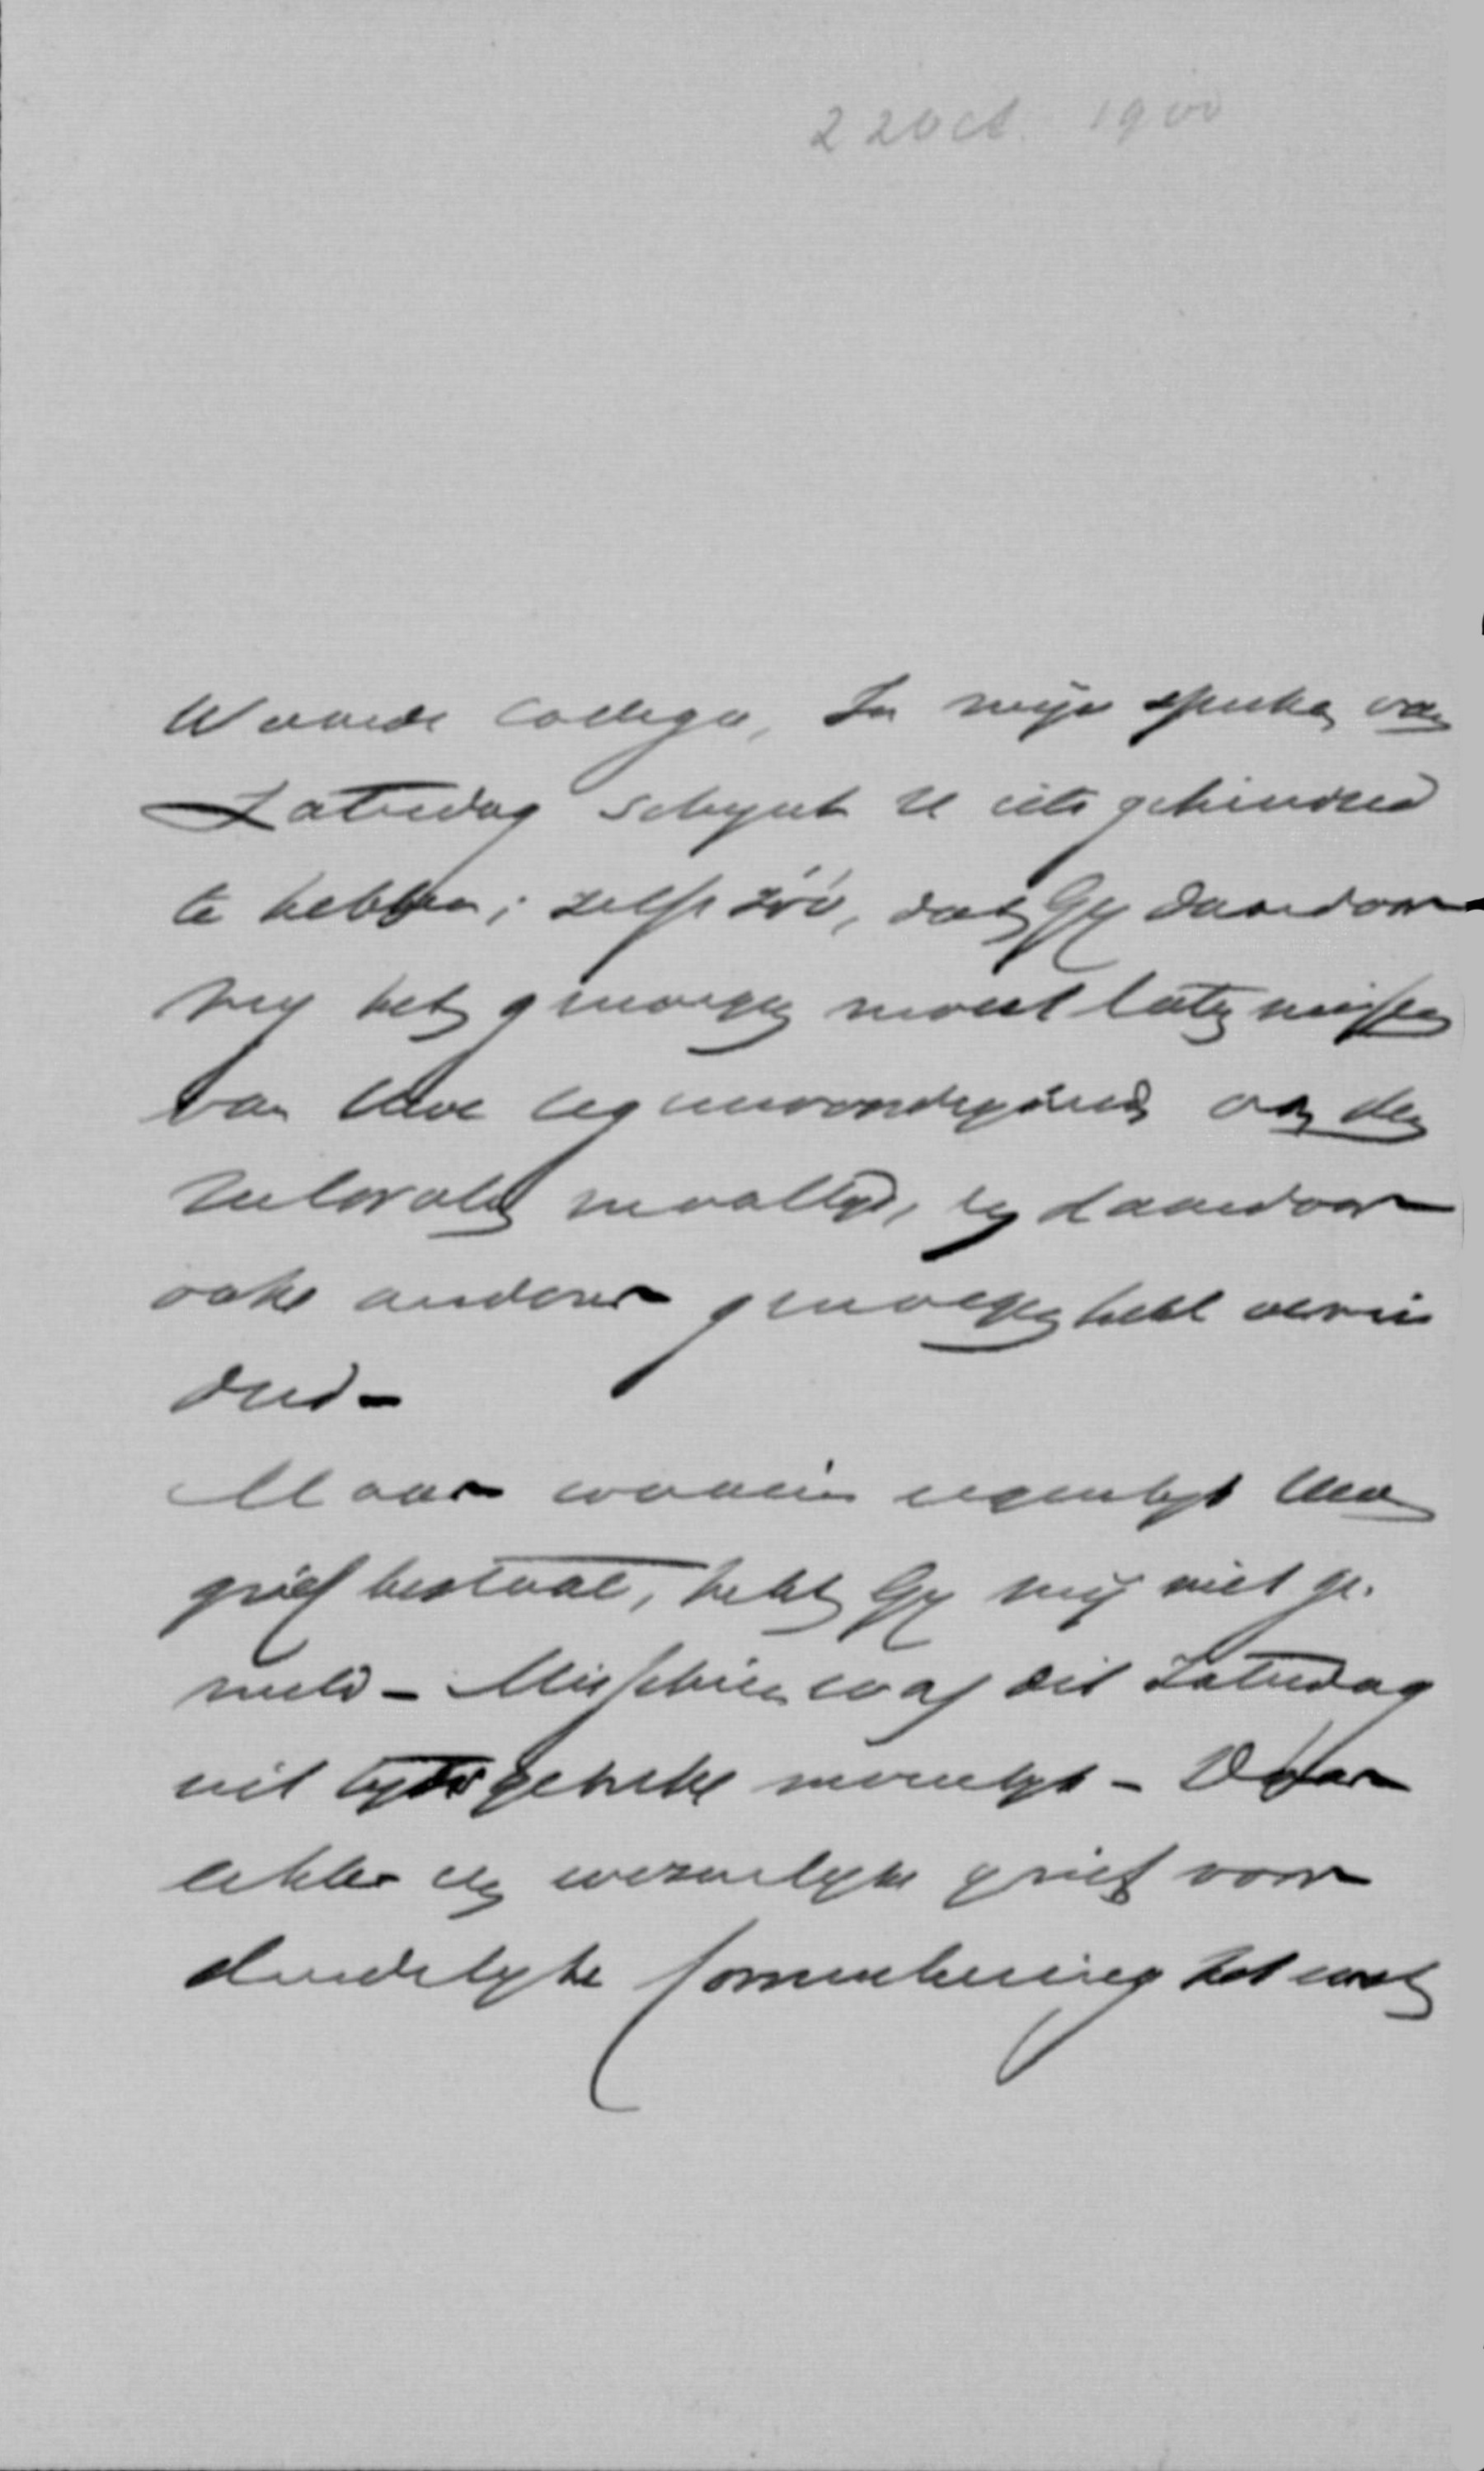 22 Oct. 1900
Waarde Collega, In mijn spreken van
Zaturdag schynt U iets gehinderd
te hebben; zelfs zóó, dat Gy daardoor
my het genoegen moest laten missen
van Uwe tegenwoordigheid aan den
maaltyd, en daardoor
ook anderer genoegen hebt vermin
derd –
Maar waarin eigenlyk Uwe
grief bestaat, hebt Gy mij niet ge-
meld – Misschien was dit Zaturdag
uit tyds gebrek moeielyk – Daar
echter een wezenlyke grief voor
duidelyke formuleering het eerst